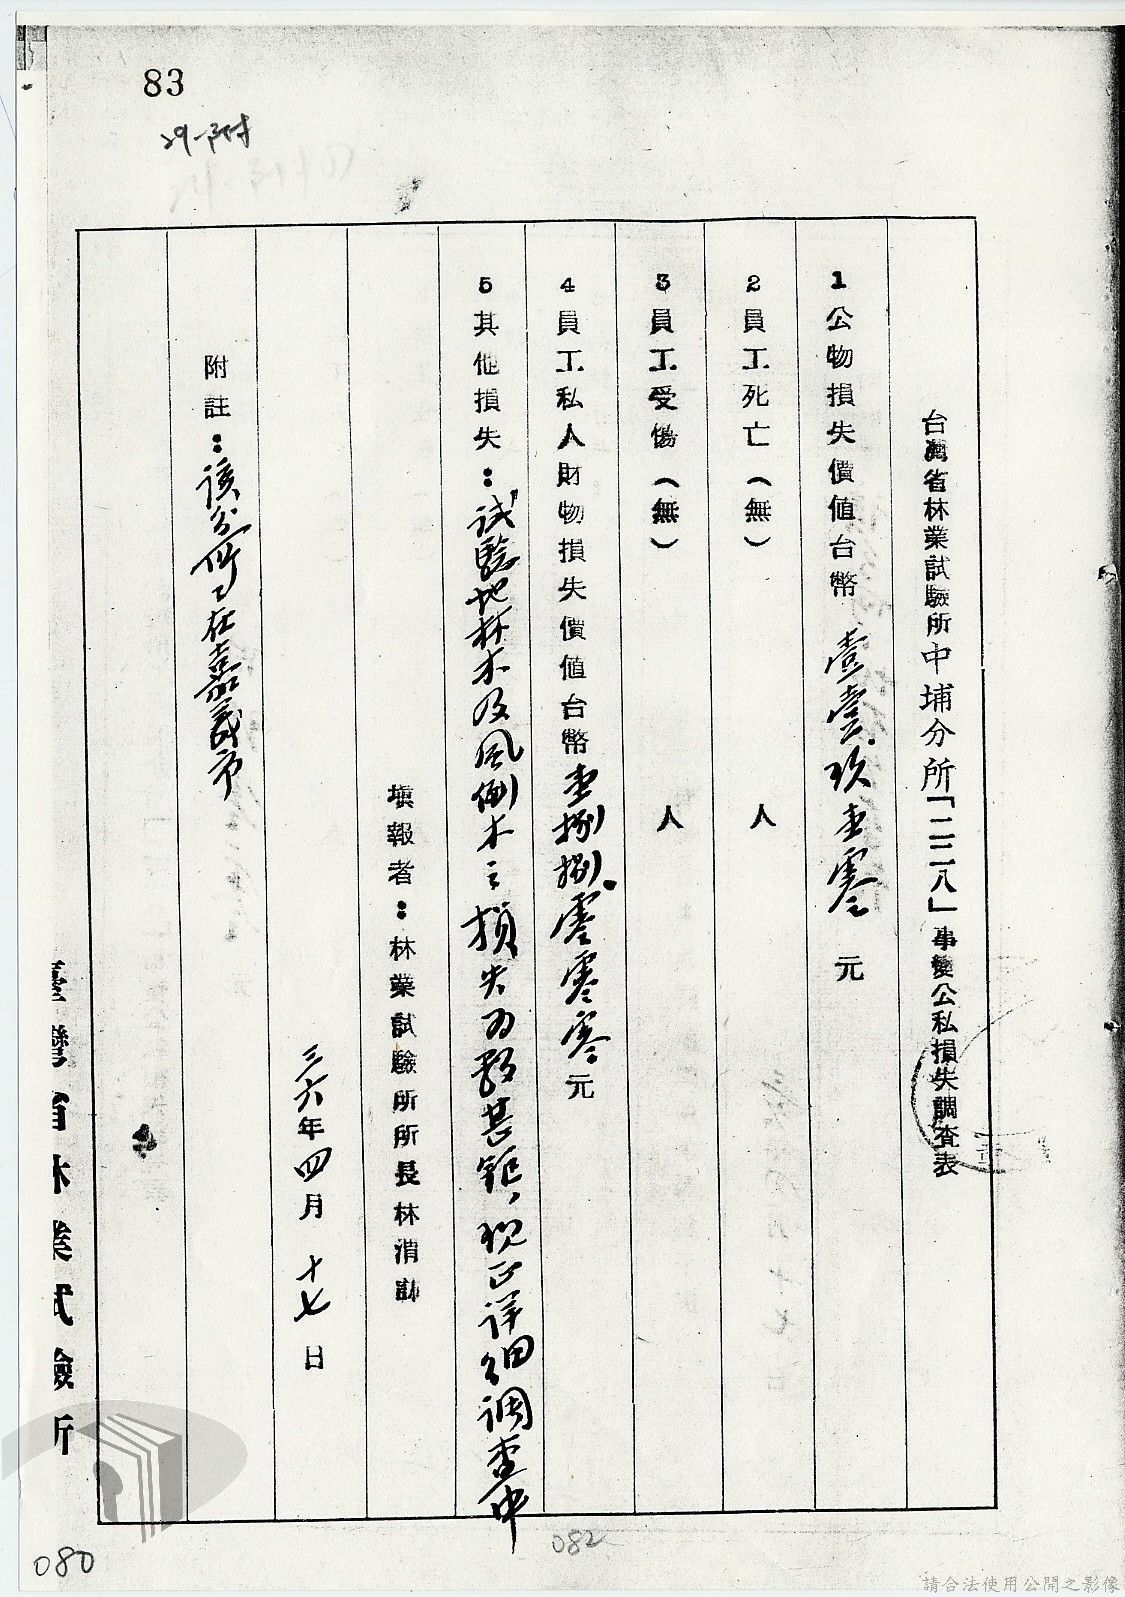 83
29-附
台灣省林業試驗所中埔分所「二二八」事變公私損失調查表
1公物損失價值台幣 壹壹.玖壹零 元
2員工死亡(無) 人
3員工受傷(無) 人
4員工私人財物損失價值台幣壹捌捌.零零零元
5其他損失:試驗地林木及風倒木之損失為數甚鉅,現正詳細調查中
填報者:林業試驗所所長林渭訪
三六年四月十七日
附註:該分所在嘉義市
臺灣省林業試驗所
080
082
請合法使用公開之影像